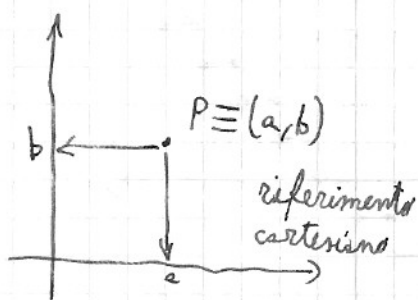 P≡(a,b)
b
riferimento
cartesiano
a